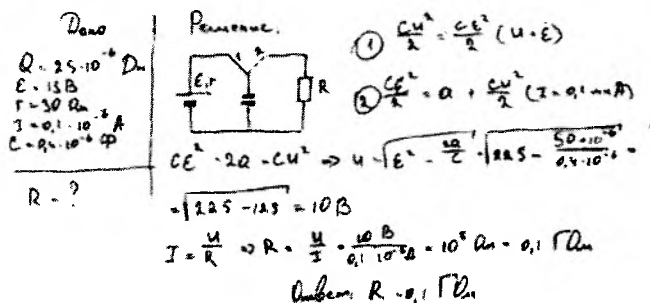 Дано
Q = 25·10⁻⁶ Дж
ε = 15 В
r = 30 Ом
I = 0,1·10⁻⁶ А
C = 0,4·10⁻⁶ Ф
R - ?
Решение.
1 2
ε, r
R
① CU²/2 = Cε²/2 (U = ε)
② Cε²/2 = Q + CU²/2 (I = 0,1 мкА)
Cε² - 2Q = CU² ⇒ U = √(ε² - 2Q/C) = √(225 - 50·10⁻⁶/0,4·10⁻⁶) =
= √(225 - 125) = 10 В
I = U/R ⇒ R = U/I = 10 В/0,1·10⁻⁶ А = 10⁸ Ом = 0,1 ГОм
Ответ: R = 0,1 ГОм